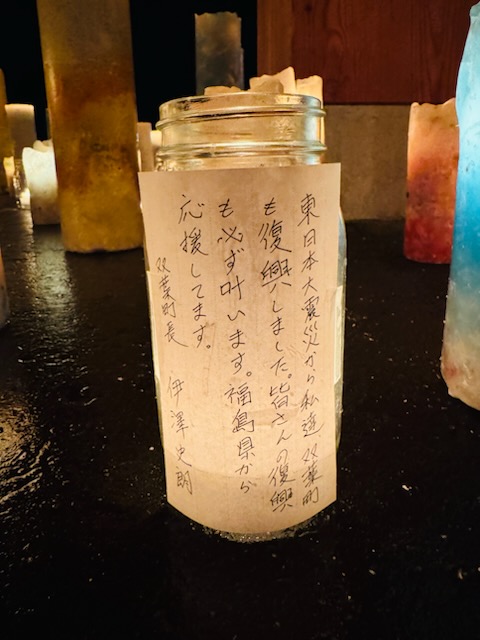 東日本大震災から私達 双葉町
も復興しました。皆さんの復興
も必ず叶います。福島県から
応援してます。
双葉町長 伊澤史朗